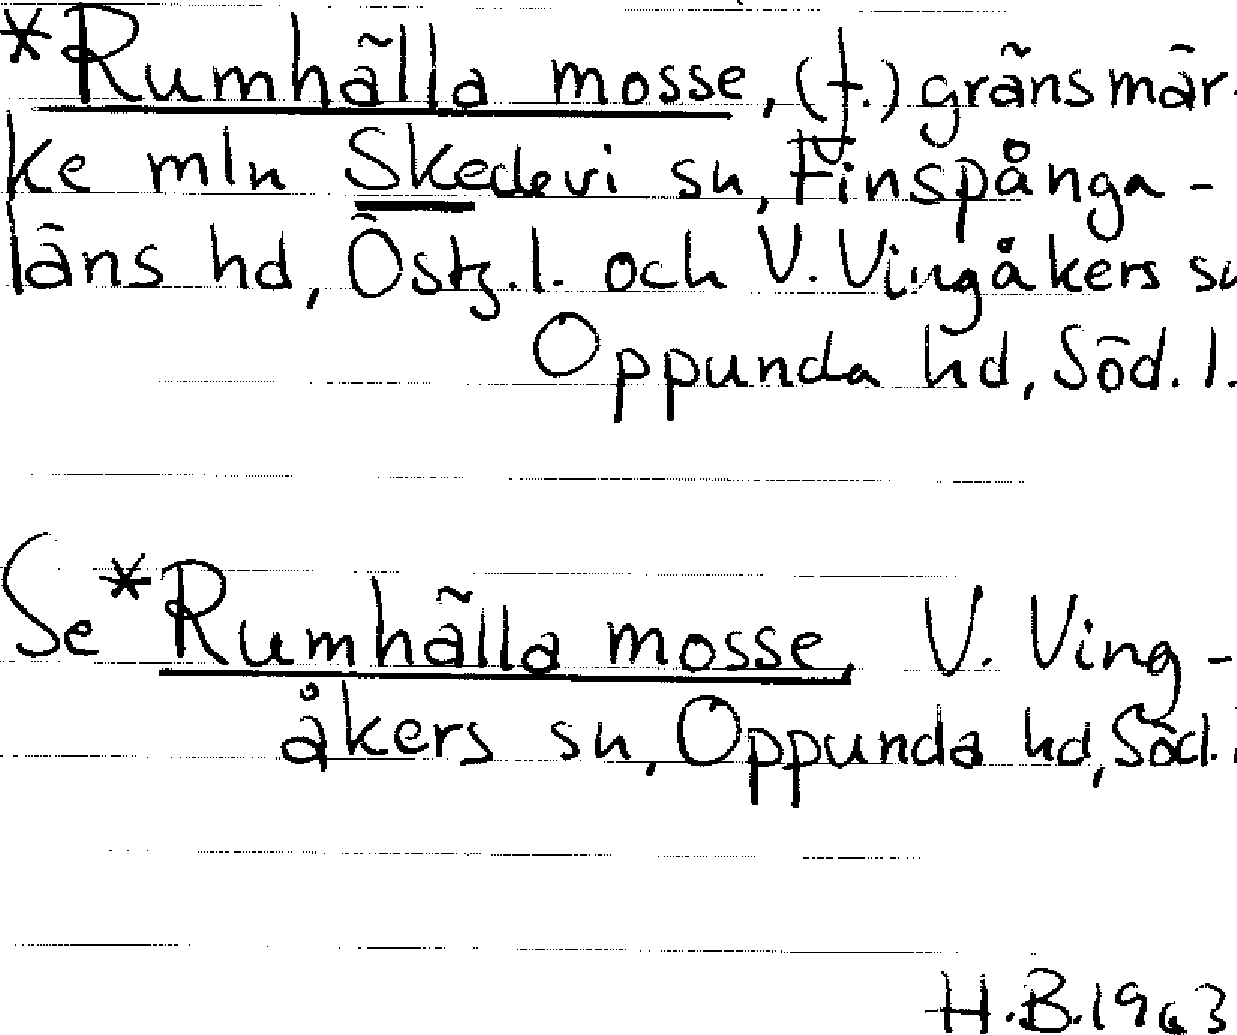 *Rumhälla mosse, (f.) gränsmär-
ke mln Skedevi sn, Finspånga-
läns hd, Östg.l. och V. Vingåkers sn
Oppunda hd, Söd. l.
Se *Rumhälla mosse, V. Ving-
åkers sn, Oppunda hd, Söd. l
H.B. 1963